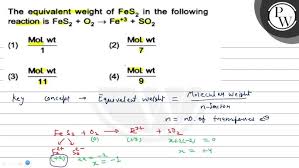 The equivalent weight of FeS₂ in the following
reaction is FeS₂ + O₂ → Fe⁺³ + SO₂
(1) Mol. wt / 1
(2) Mol. wt / 7
(3) Mol. wt / 11
(4) Mol. wt / 9
PW
Key concept → Equivalent weight = Molecular weight / n-factor
n = no. of transferred e⊖
FeS₂ + O₂ → Fe³⁺ + SO₂
(0) (+3)
x = +4
x = -1